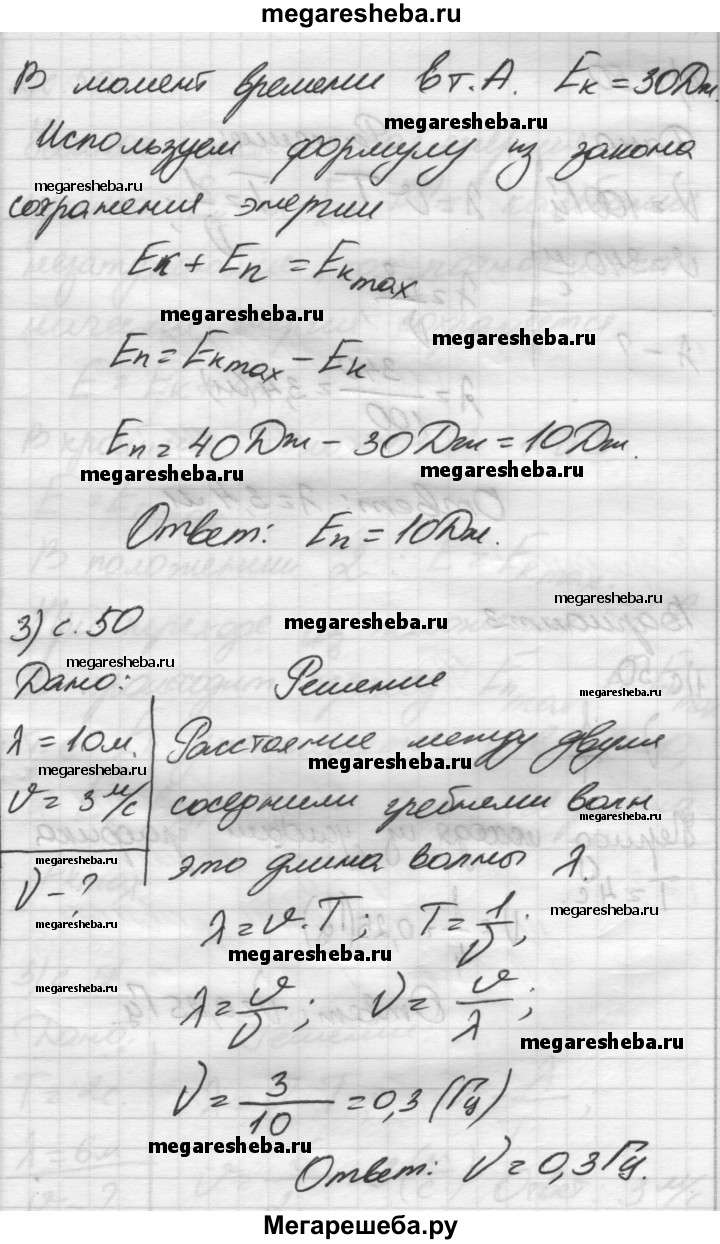 megaresheba.ru
В момент времени в т. А. Eк = 30 Дж
megaresheba.ru
Используем формулу из закона
megaresheba.ru
сохранения энергии
Eк + Eп = Eк max
megaresheba.ru
megaresheba.ru
Eп = Eк max – Eк
Eп = 40 Дж – 30 Дж = 10 Дж.
megaresheba.ru
megaresheba.ru
Ответ: Eп = 10 Дж.
megaresheba.ru
3) с. 50
megaresheba.ru
megaresheba.ru
Дано: Решение
megaresheba.ru
λ = 10 м. Расстояние между двумя
megaresheba.ru
megaresheba.ru
υ = 3 м/с соседними гребнями волн
megaresheba.ru
megaresheba.ru
это длина волны λ.
ν – ?
megaresheba.ru
megaresheba.ru
λ = υ · T; T = 1/ν;
megaresheba.ru
megaresheba.ru
megaresheba.ru
λ = υ/ν; ν = υ/λ;
megaresheba.ru
ν = 3/10 = 0,3 (Гц)
megaresheba.ru
Ответ: ν = 0,3 Гц.
Мегарешеба.ру